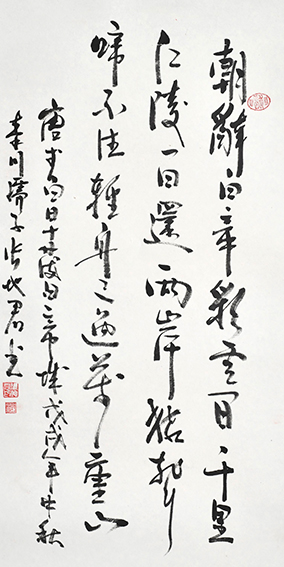 朝辭白帝彩雲間千里
江陵一日還兩岸猿聲
啼不住輕舟已過萬重山
唐李白 發白帝城戊戌年中秋